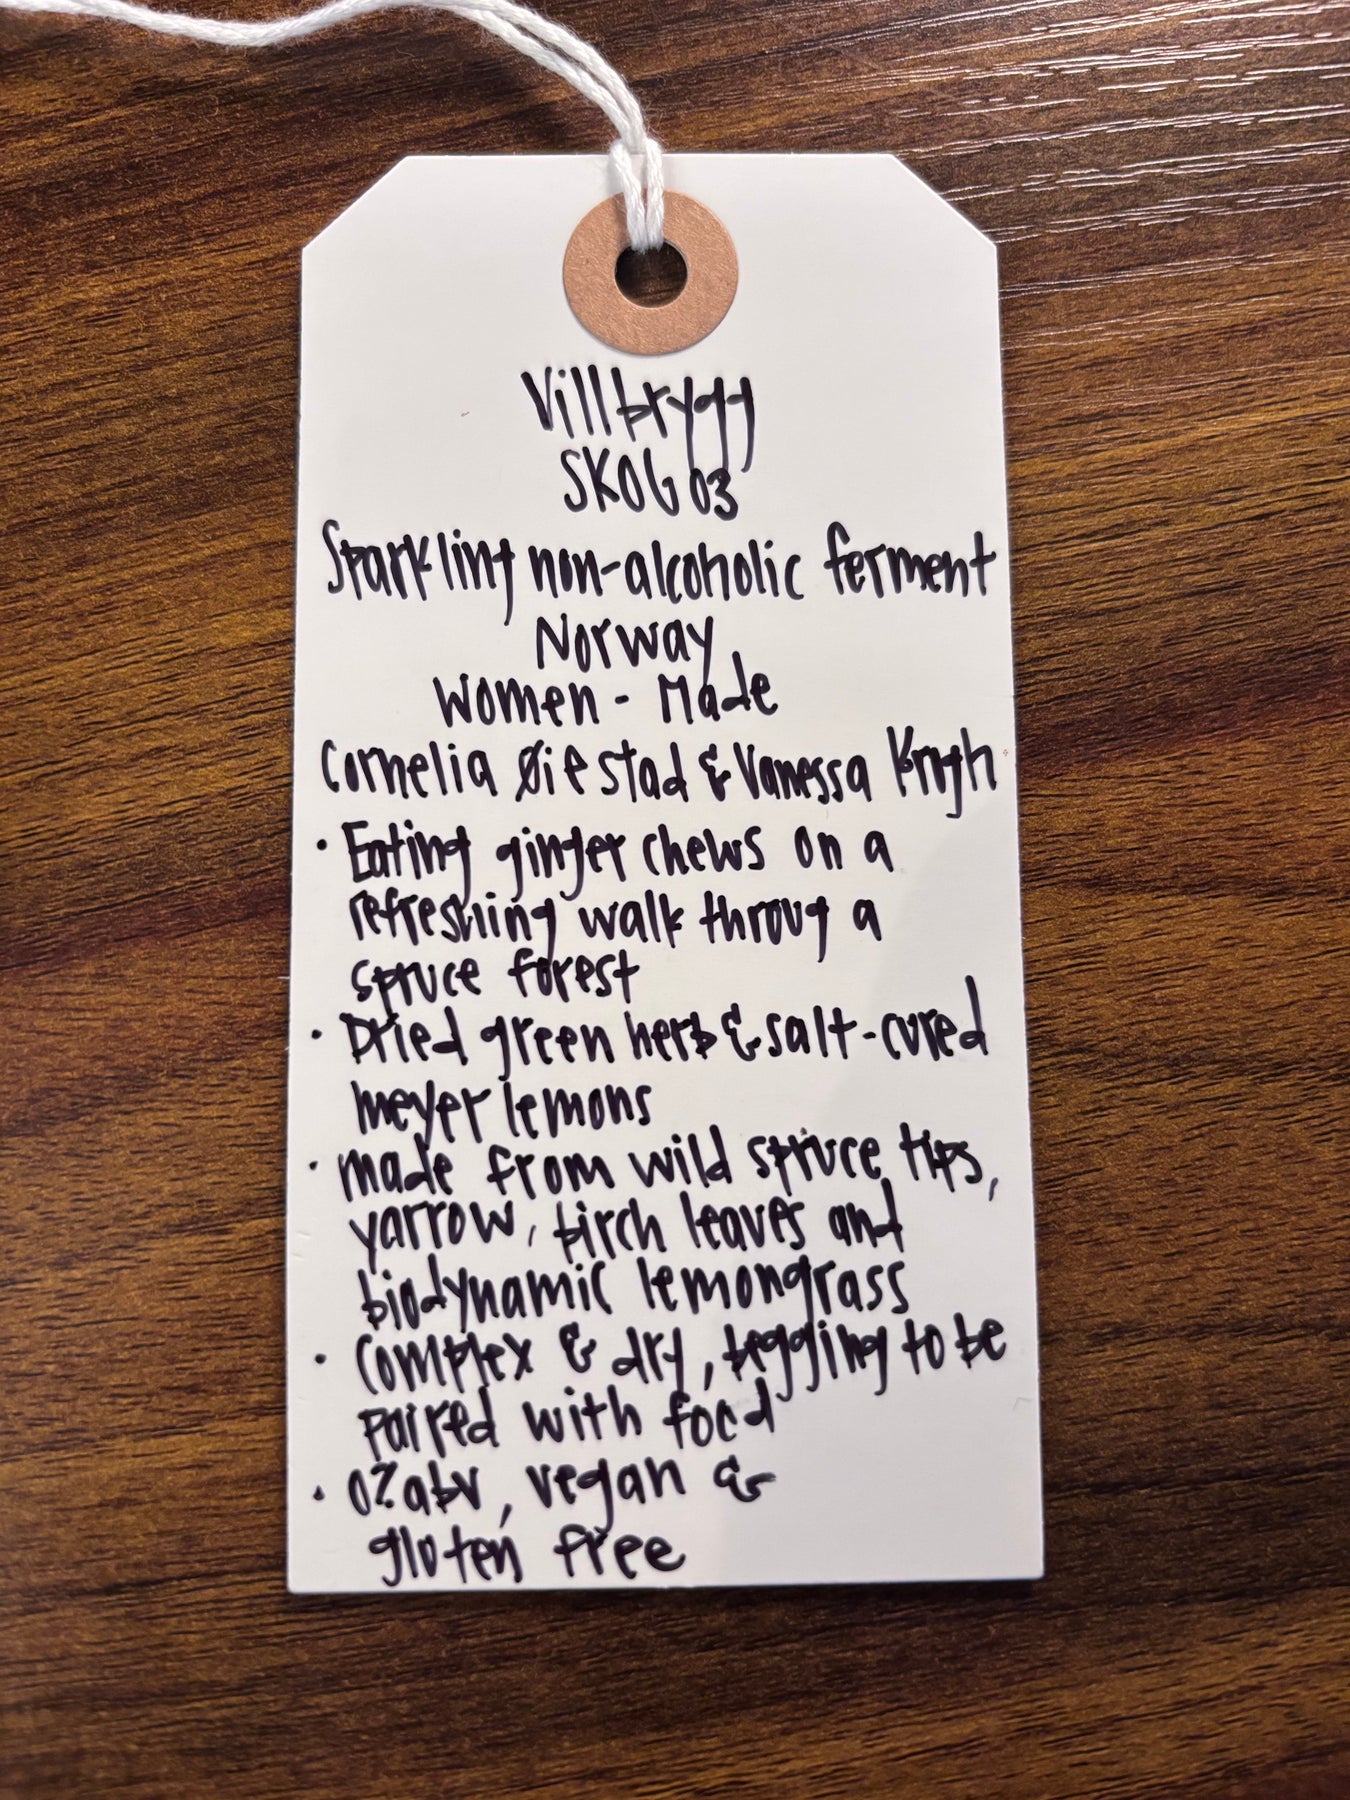 Villbrygg
SKOG 03
Sparkling non-alcoholic ferment
Norway
Women - Made
Cornelia Øiestad & Vanessa Krogh
· Eating ginger chews on a
refreshing walk throug a
spruce forest
· Dried green herb & salt-cured
meyer lemons
· made from wild spruce tips,
yarrow, birch leaves and
biodynamic lemongrass
· Complex & dry, begging to be
paired with food
· 0% abv, vegan &
gluten free